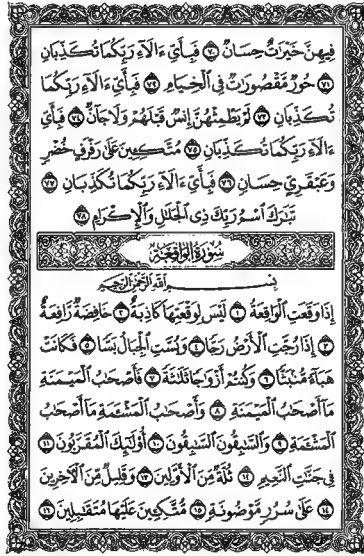 فِيهِنَّ خَيْرَاتٌ حِسَانٌ ٧٠ فَبِأَيِّ ءَالَآءِ رَبِّكُمَا تُكَذِّبَانِ
٧١ حُورٌ مَّقْصُورَاتٌ فِي الْخِيَامِ ٧٢ فَبِأَيِّ ءَالَآءِ رَبِّكُمَا
تُكَذِّبَانِ ٧٣ لَمْ يَطْمِثْهُنَّ إِنسٌ قَبْلَهُمْ وَلَا جَانٌّ ٧٤ فَبِأَيِّ
ءَالَآءِ رَبِّكُمَا تُكَذِّبَانِ ٧٥ مُتَّكِـِٔينَ عَلَىٰ رَفْرَفٍ خُضْرٍ
وَعَبْقَرِيٍّ حِسَانٍ ٧٦ فَبِأَيِّ ءَالَآءِ رَبِّكُمَا تُكَذِّبَانِ ٧٧
تَبَٰرَكَ اسْمُ رَبِّكَ ذِي الْجَلَٰلِ وَالْإِكْرَامِ ٧٨
سُورَةُ الْوَاقِعَةِ
بِسْمِ اللَّهِ الرَّحْمَٰنِ الرَّحِيمِ
إِذَا وَقَعَتِ الْوَاقِعَةُ ١ لَيْسَ لِوَقْعَتِهَا كَاذِبَةٌ ٢ خَافِضَةٌ رَّافِعَةٌ
٣ إِذَا رُجَّتِ الْأَرْضُ رَجًّا ٤ وَبُسَّتِ الْجِبَالُ بَسًّا ٥ فَكَانَتْ
هَبَآءً مُّنۢبَثًّا ٦ وَكُنتُمْ أَزْوَٰجًا ثَلَٰثَةً ٧ فَأَصْحَٰبُ الْمَيْمَنَةِ
مَآ أَصْحَٰبُ الْمَيْمَنَةِ ٨ وَأَصْحَٰبُ الْمَشْـَٔمَةِ مَآ أَصْحَٰبُ
الْمَشْـَٔمَةِ ٩ وَالسَّٰبِقُونَ السَّٰبِقُونَ ١٠ أُو۟لَٰٓئِكَ الْمُقَرَّبُونَ ١١
فِي جَنَّٰتِ النَّعِيمِ ١٢ ثُلَّةٌ مِّنَ الْأَوَّلِينَ ١٣ وَقَلِيلٌ مِّنَ الْآخِرِينَ
١٤ عَلَىٰ سُرُرٍ مَّوْضُونَةٍ ١٥ مُّتَّكِـِٔينَ عَلَيْهَا مُتَقَٰبِلِينَ ١٦